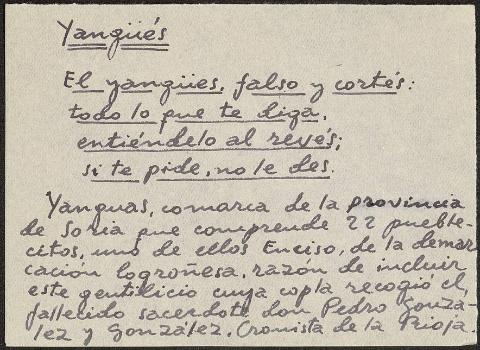 Yangüés
El yangües, falso y cortés:
todo lo que te diga,
entiéndelo al revés;
si te pide, no le des.
Yanguas, comarca de la provincia
de Soria que comprende 22 pueble-
citos, uno de ellos Enciso, de la demar
cación logroñesa, razón de incluir
este gentilicio cuya copla recogió el
fallecido sacerdote don Pedro Gonzá-
lez y González, Cronista de la Rioja.